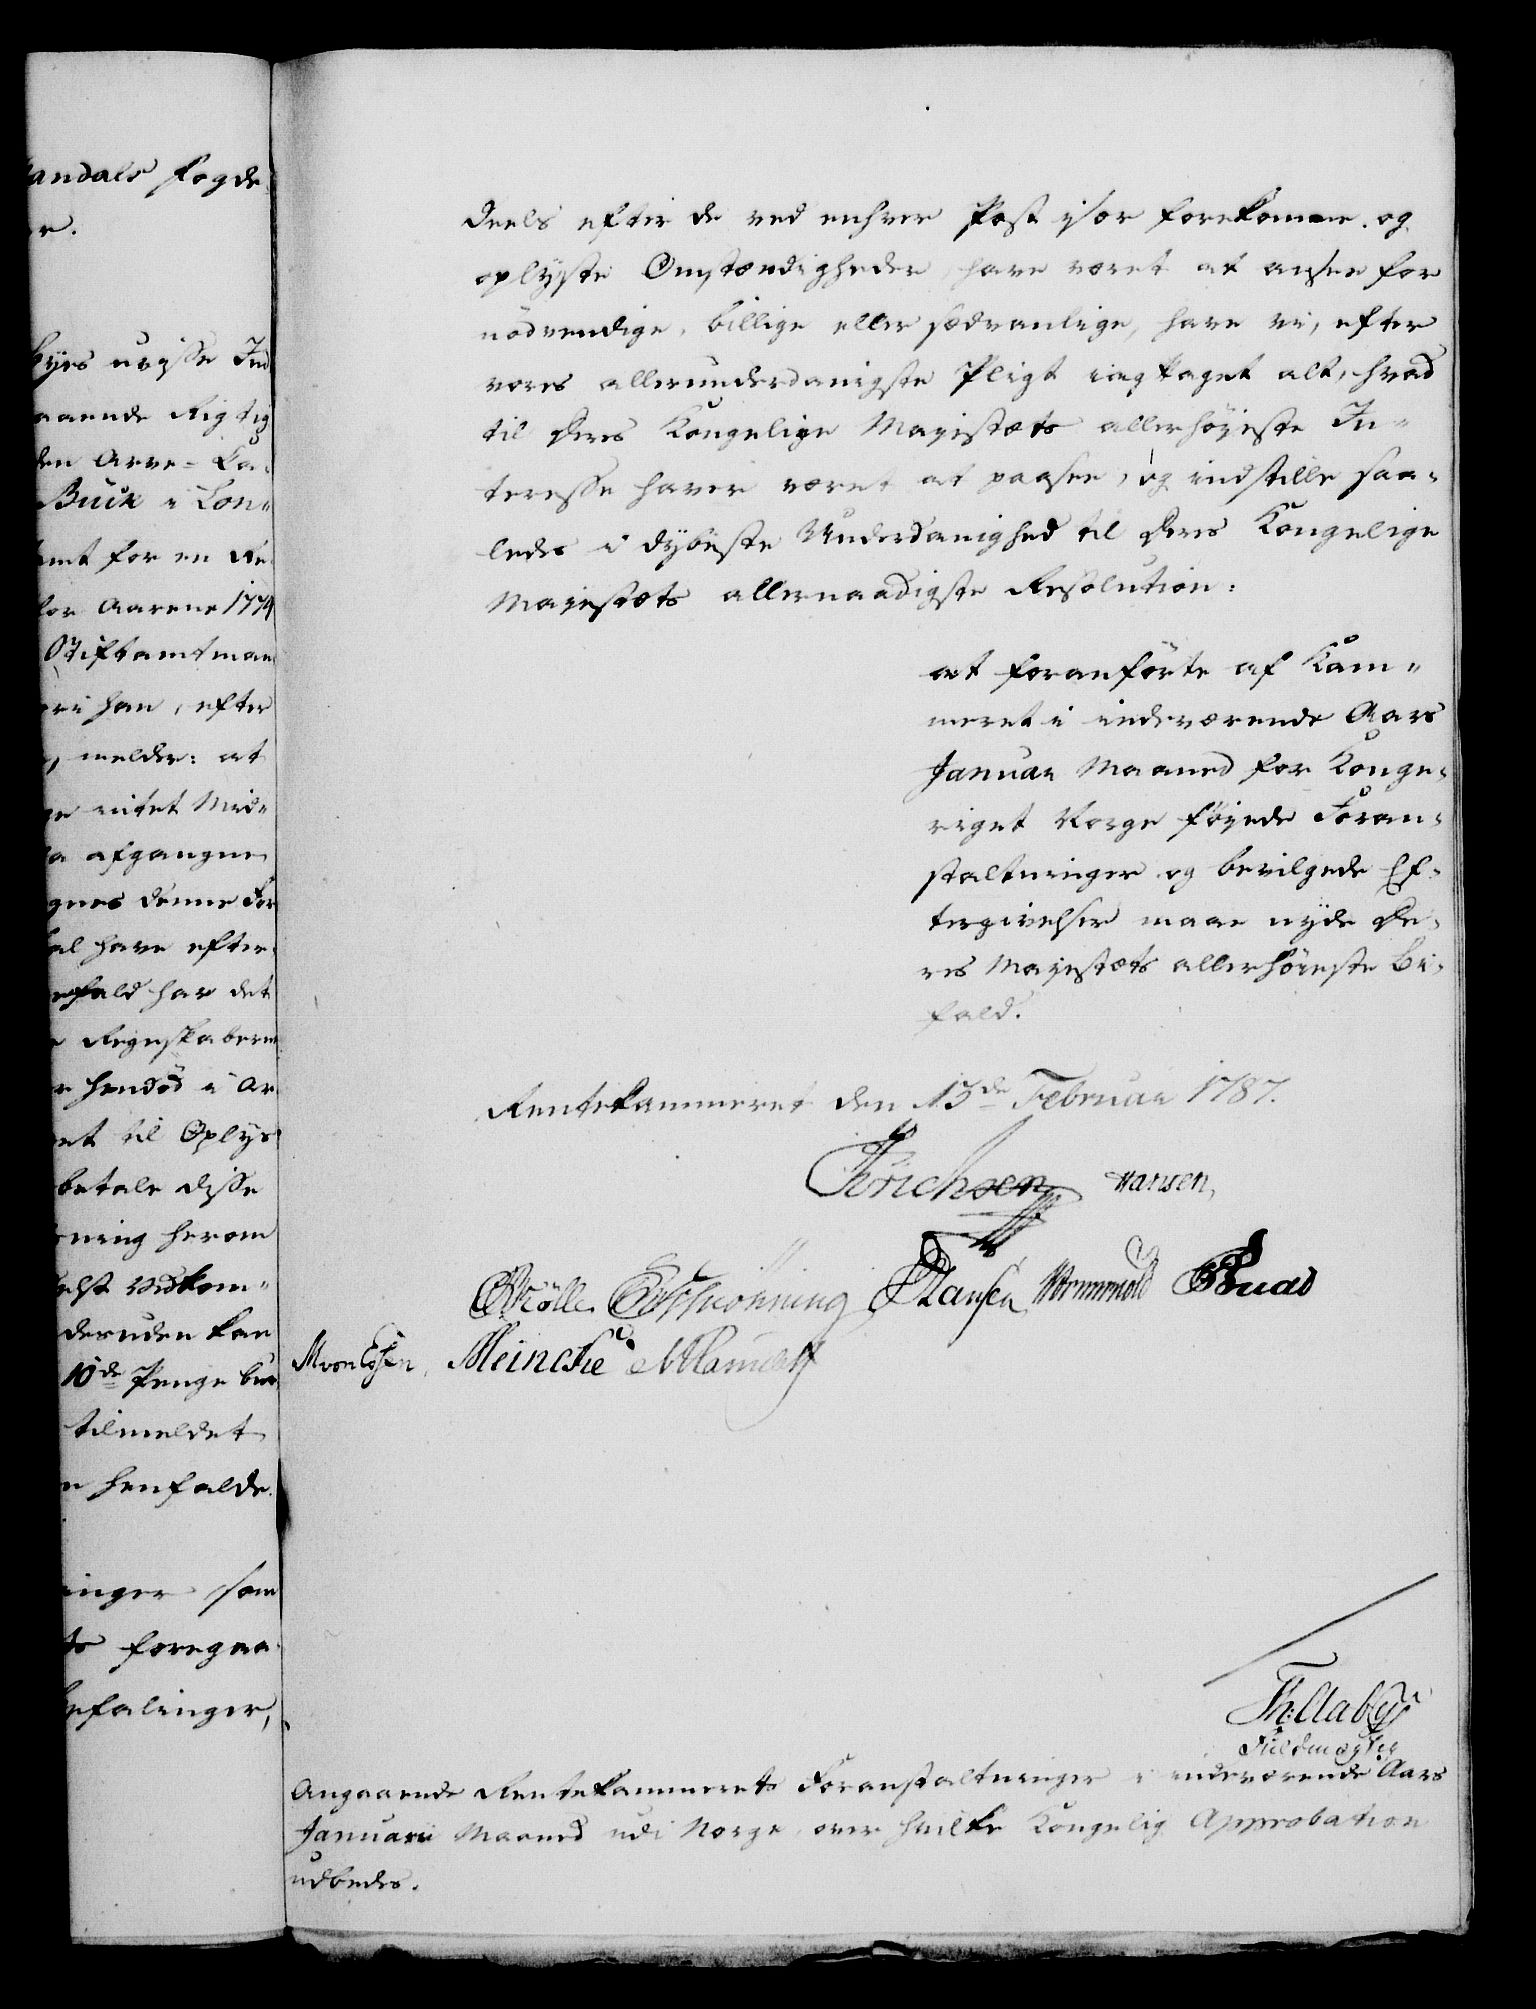 andals Fogde
r.
byes uvisse Ind
aaende Rigtig
den Arve-Ca-
Buck i Lon-
amt for en Re
for Aarene 1774
Stiftamtman
ori han, efter
, melder: at
ge intet Mid-
a afgangne
gnes denne For
al have efter-
efald har det
Regnskaberne
r hendöd i Ar
et til Oplys
betale disse
ning herom
elst Vedkom-
deruden kan
10de Penge bur
tilmeldet
n henfalde.
inger som
ts foregaa-
befalinger,
deels efter de ved enhver Post især forekomne og
oplyste Omstændigheder, have været at ansee for
nödvendige, billige eller sædvanlige, have vi, efter
vores allerunderdanigste Pligt iagttaget alt, hvad
til Deres Kongelige Majestæts allerhöyeste In-
teresse haver været at paasee, og indstille saa-
ledes i dybeste Underdanighed til Deres Kongelige
Majestæts allernaadigste Resolution:
at foranförte af Kam-
meret i indeværende Aars
Januari Maaned for Konge-
riget Norge föyede Foran-
staltninger og bevilgede Ef-
tergivelser maae nyde De-
res Majestæts allerhöyeste Bi-
fald.
Rentekammeret den 13de Februari 1787.
Jörichsen Hansen,
Möller Schönning Hansen Wormskiold
M von Essen, Meincke
Th: Aabye
Fuldmægtig
Angaaende Rentekammerets Foranstaltninger i indeværende Aars
Januarii Maaned udi Norge, over hvilke Kongelig Approbation
udbedes.